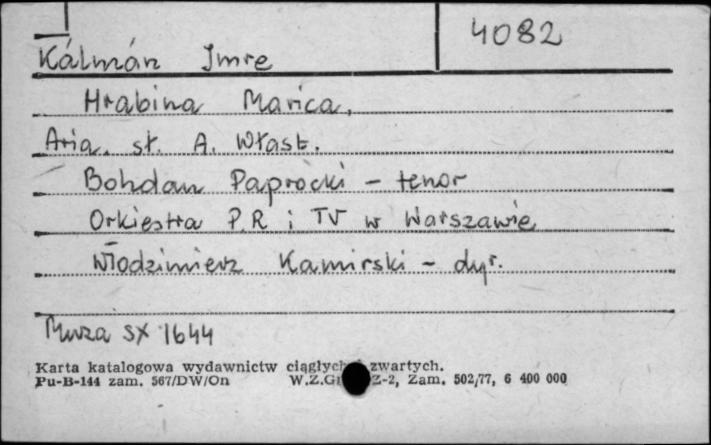 4082
Kálmán Imre
Hrabina Marica,
Aria. sł. A. Włast.
Bohdan Paprocki – tenor
Orkiestra P.R i TV w Warszawie
Włodzimierz Kamirski – dyr.
Muza SX 1644
Karta katalogowa wydawnictw ciągłych zwartych.
Pu-B-144 zam. 567/DW/On W.Z.G Z-2, Zam. 502/77, 6 400 000